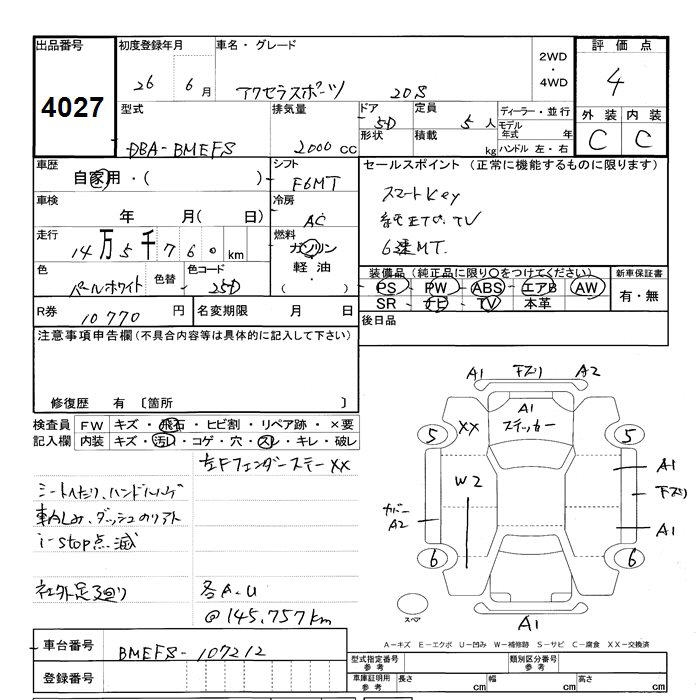 出品番号
4027
初度登録年月
26 6月
車名・グレード
アクセラスポーツ 20S
2WD
・
4WD
評価点
4
外装 内装
C C
型式
DBA-BMEFS
排気量
2000 CC
ドア
5D
形状
定員
5人
積載
kg
ディーラー・並行
モデル年式 年
ハンドル 左・右
車歴
自家用・( )
シフト
F6MT
車検
年 月( 日)
冷房
AC
走行
14万5千760km
燃料
ガソリン
軽油・
( )
色
パールホワイト
色替
色コード
25D
R券
10770円
名変期限 月 日
セールスポイント(正常に機能するものに限ります)
スマートKey
純正ナビ、TV
6速MT.
装備品(純正品に限り○をつけてください)
PS PW ABS エアB AW
SR ナビ TV 本革
新車保証書
有・無
後日品
注意事項申告欄(不具合内容等は具体的に記入して下さい)
修復歴 有〔箇所 〕
検査員記入欄
FW キズ・飛石・ヒビ割・リペア跡・×要
内装 キズ・汚レ・コゲ・穴・スレ・キレ・破レ
左Fフェンダーステー××
シートへたり、ハンドルハゲ
i-stop点滅
社外足廻り
各A.U
@145,757km
A1 下スリ A2
A1
ステッカー
××
5 5
W2
A1
下スリ
カバー
A2
A1
6 6
スペア
A1
A-キズ E-エクボ U-凹み W-補修跡 S-サビ C-腐食 XX-交換済
車台番号
BMEFS-107212
登録番号
型式指定番号
参考
類別区分番号
参考
車庫証明用
参考
長さ cm 幅 cm 高さ cm